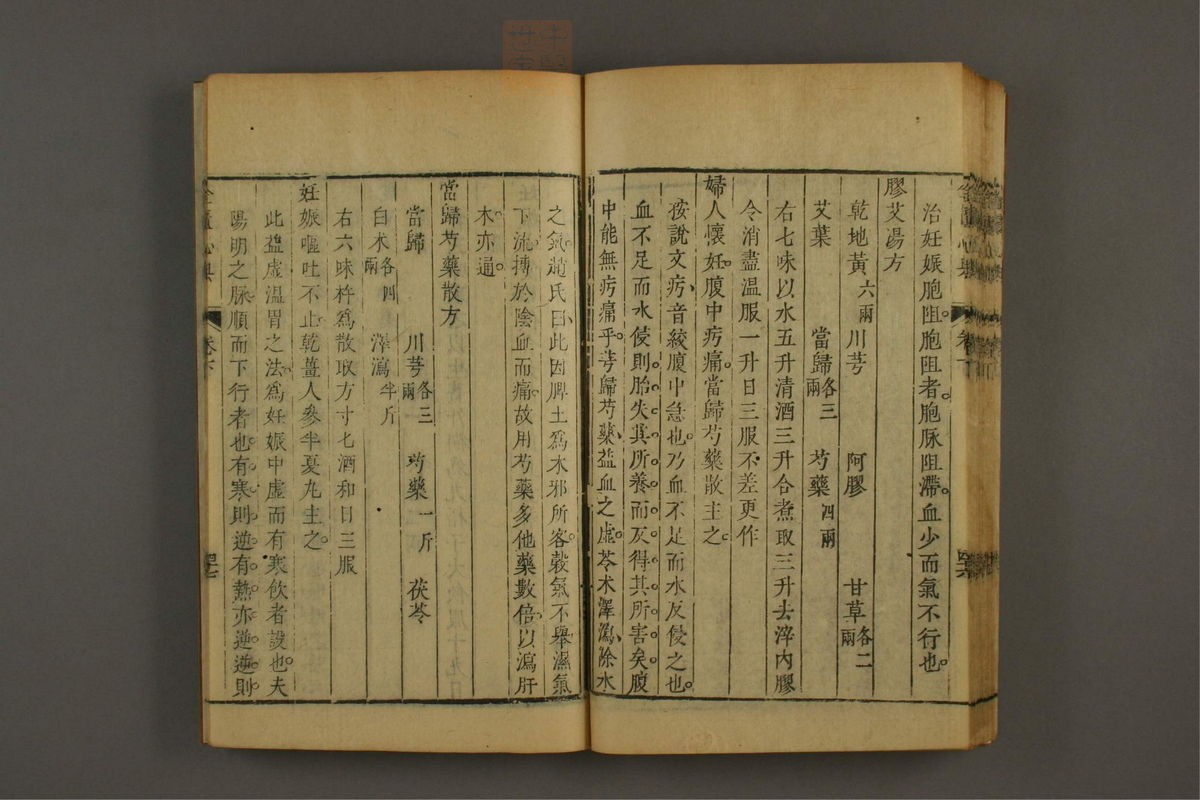 治妊娠胞阻胞阻者胞脉阻滯血少而氣不行也
膠艾湯方
乾地黃六兩 川芎 阿膠 甘草各二兩
艾葉 當歸各三兩 芍藥四兩
右七味以水五升清酒三升合煮取三升去滓內膠
令消盡温服一升日三服不差更作
婦人懷妊腹中㽲痛當歸芍藥散主之
按說文㽲音絞腹中急也乃血不足而水反侵之也
血不足而水侵則胎失其所養而反得其所害矣腹
中能無㽲痛乎芎歸芍藥益血之虛苓朮澤瀉除水
之氣趙氏曰此因脾土為木邪所客穀氣不舉濕氣
下流搏於陰血而痛故用芍藥多他藥數倍以瀉肝
木亦通
當歸芍藥散方
當歸 川芎各三兩 芍藥一斤 茯苓
白朮各四兩 澤瀉半斤
右六味杵為散取方寸匕酒和日三服
妊娠嘔吐不止乾薑人參半夏丸主之
此益虛温胃之法為妊娠中虛而有寒飲者設也夫
陽明之脉順而下行者也有寒則逆有熱亦逆逆則
心典 卷下